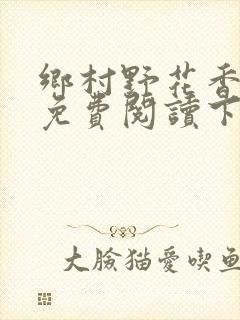 鄉村野花香
免費閱讀下
大臉猫愛喫鱼